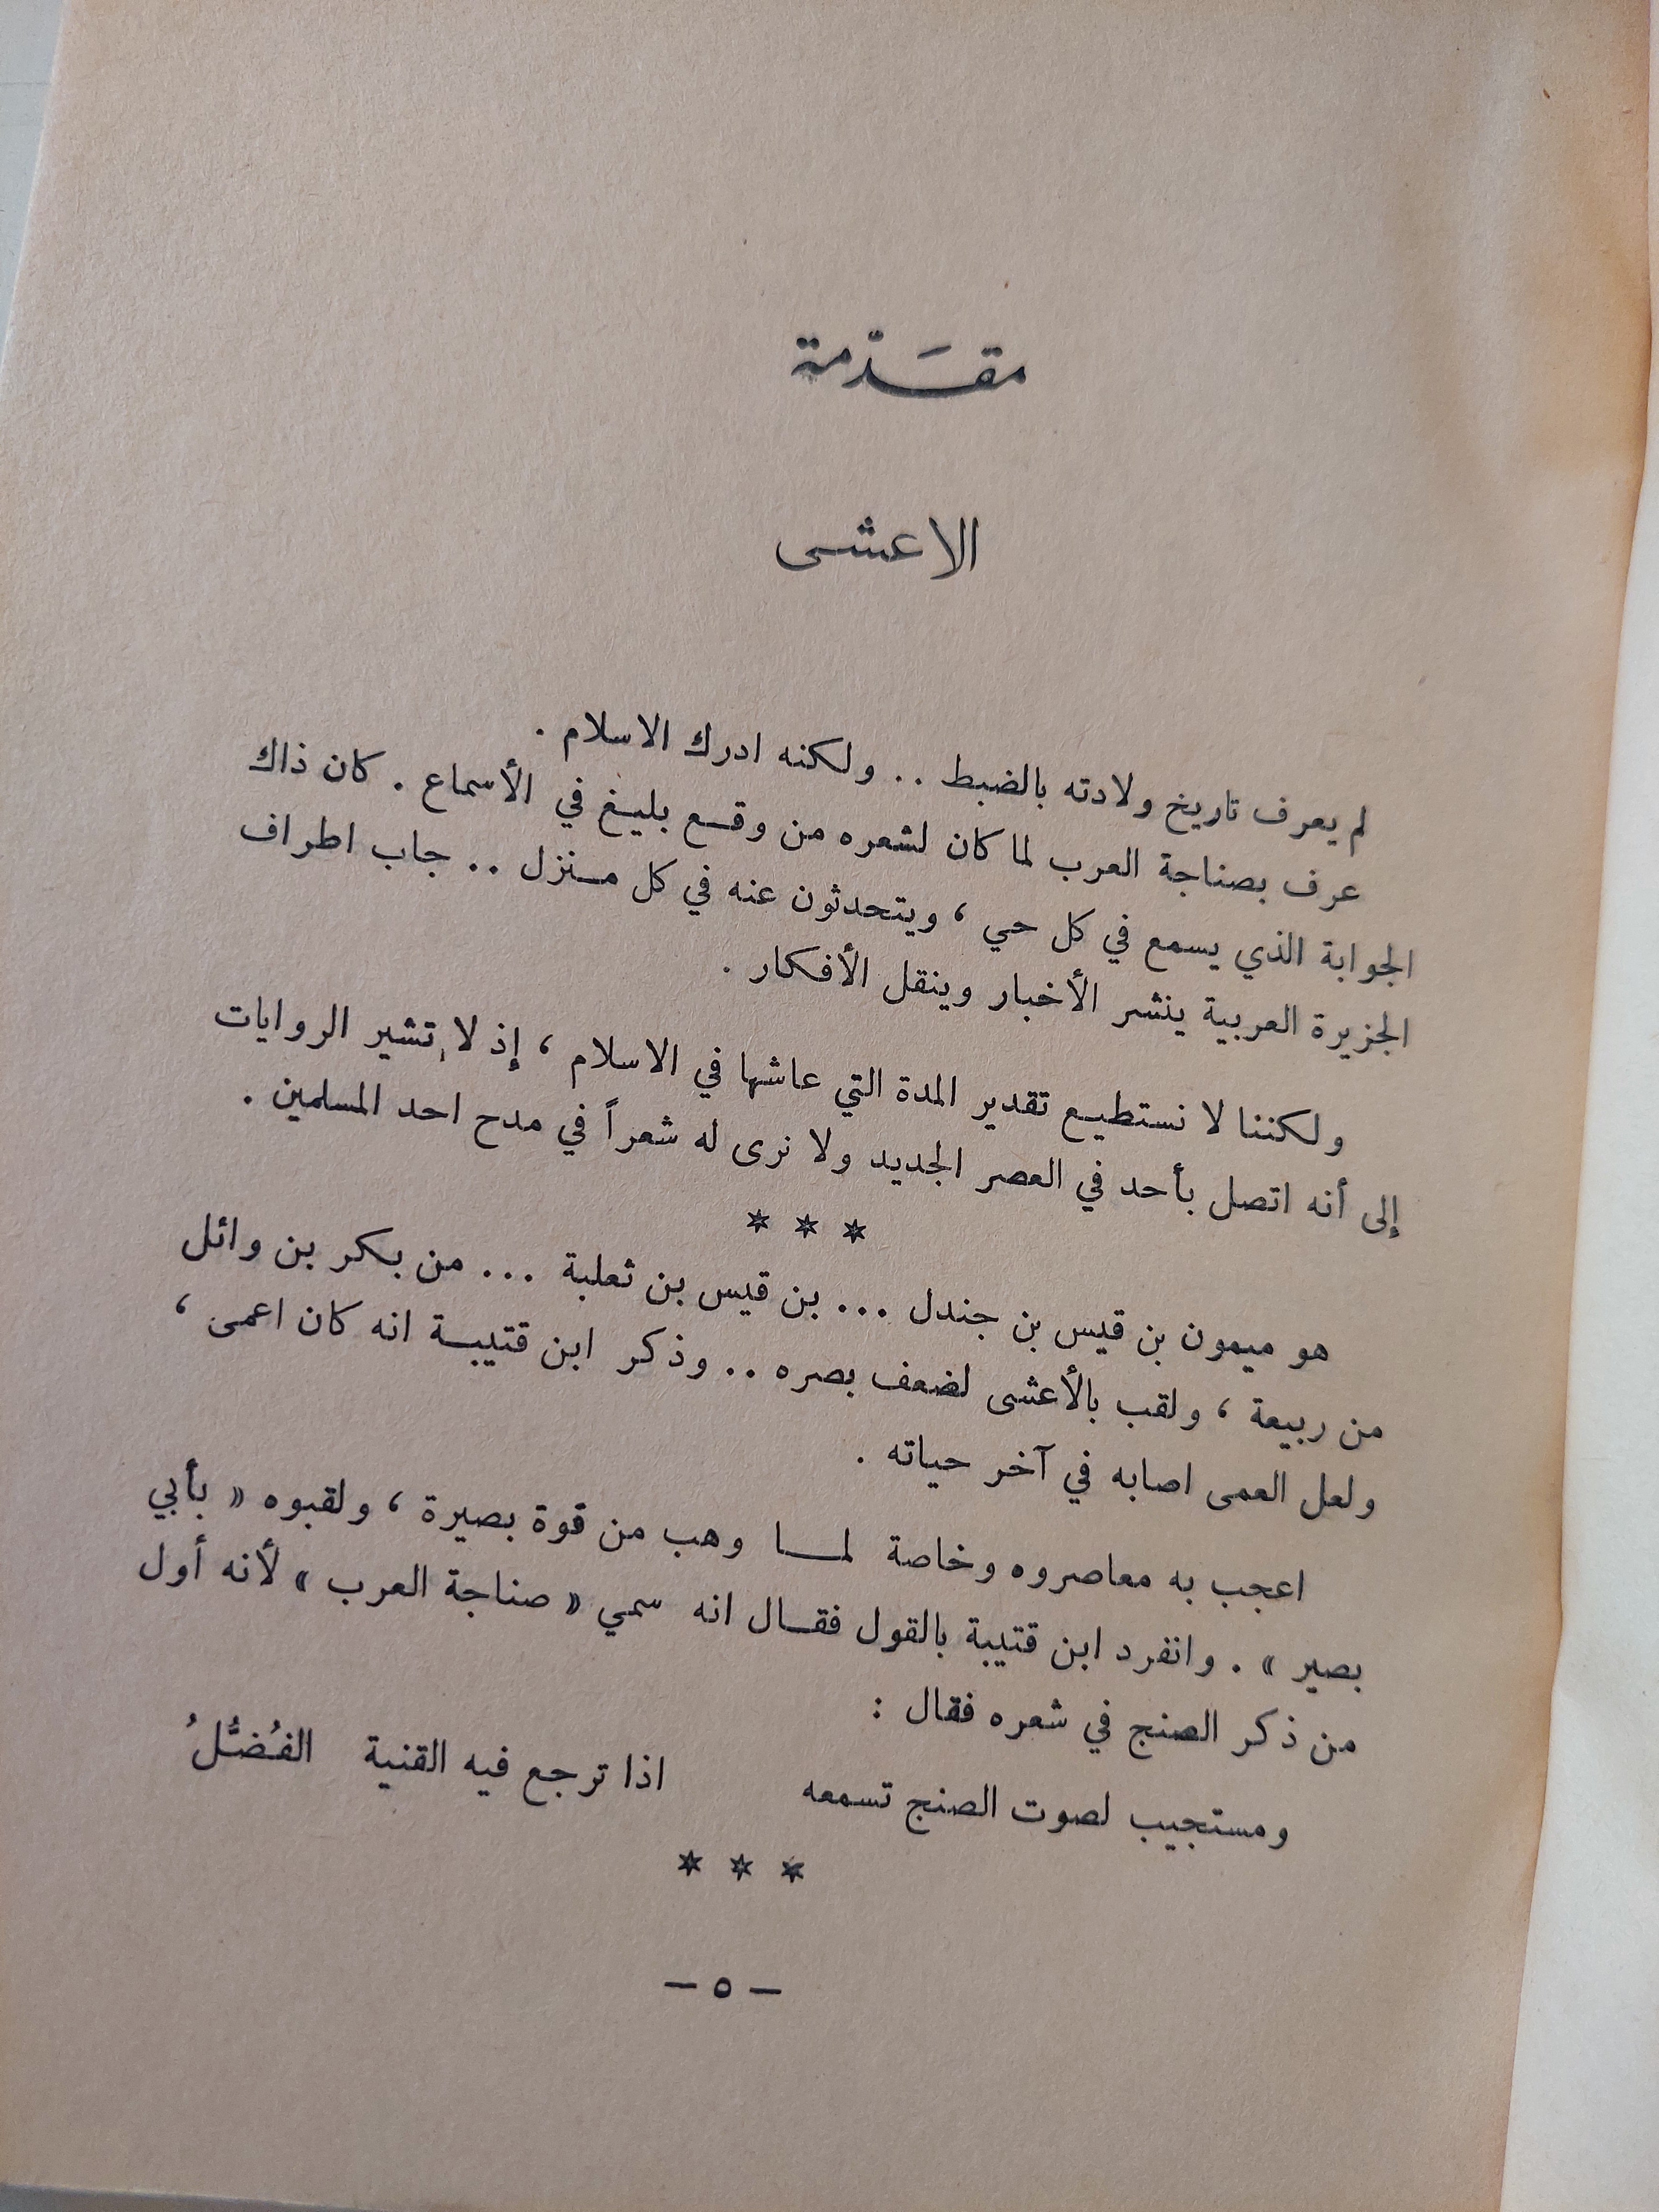 مقَدّمة
الاعشى
لم يعرف تاريخ ولادته بالضبط .. ولكنه ادرك الاسلام .
عرف بصناجة العرب لما كان لشعره من وقع بليغ في الأسماع . كان ذاك
الجوابة الذي يسمع في كل حي ، ويتحدثون عنه في كل منزل .. جاب اطراف
الجزيرة العربية ينشر الأخبار وينقل الأفكار .
ولكننا لا نستطيع تقدير المدة التي عاشها في الاسلام ، إذ لا تشير الروايات
إلى أنه اتصل بأحد في العصر الجديد ولا نرى له شعراً في مدح احد المسلمين .
* * *
هو ميمون بن قيس بن جندل ... بن قيس بن ثعلبة ... من بكر بن وائل
من ربيعة ، ولقب بالأعشى لضعف بصره .. وذكر ابن قتيبة انه كان اعمى ،
ولعل العمى اصابه في آخر حياته .
اعجب به معاصروه وخاصة لما وهب من قوة بصيرة ، ولقبوه « بأبي
بصير » . وانفرد ابن قتيبة بالقول فقال انه سمي « صناجة العرب » لأنه أول
من ذكر الصنج في شعره فقال :
ومستجيب لصوت الصنج تسمعه اذا ترجع فيه القنية الفُضُّلُ
* * *
— ٥ —